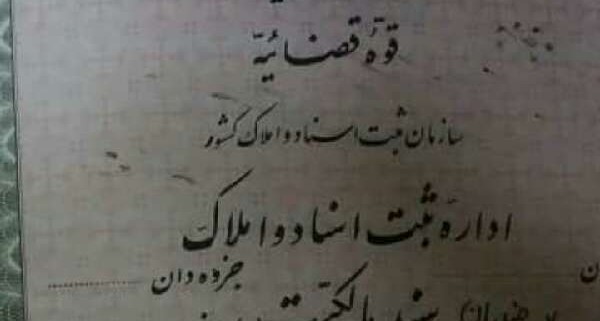 قوهٔ قضائیّه
سازمان ثبت اسناد و املاک کشور
ادارهٔ ثبت اسناد و املاک
جزوه‌دان
سند مالکیّت